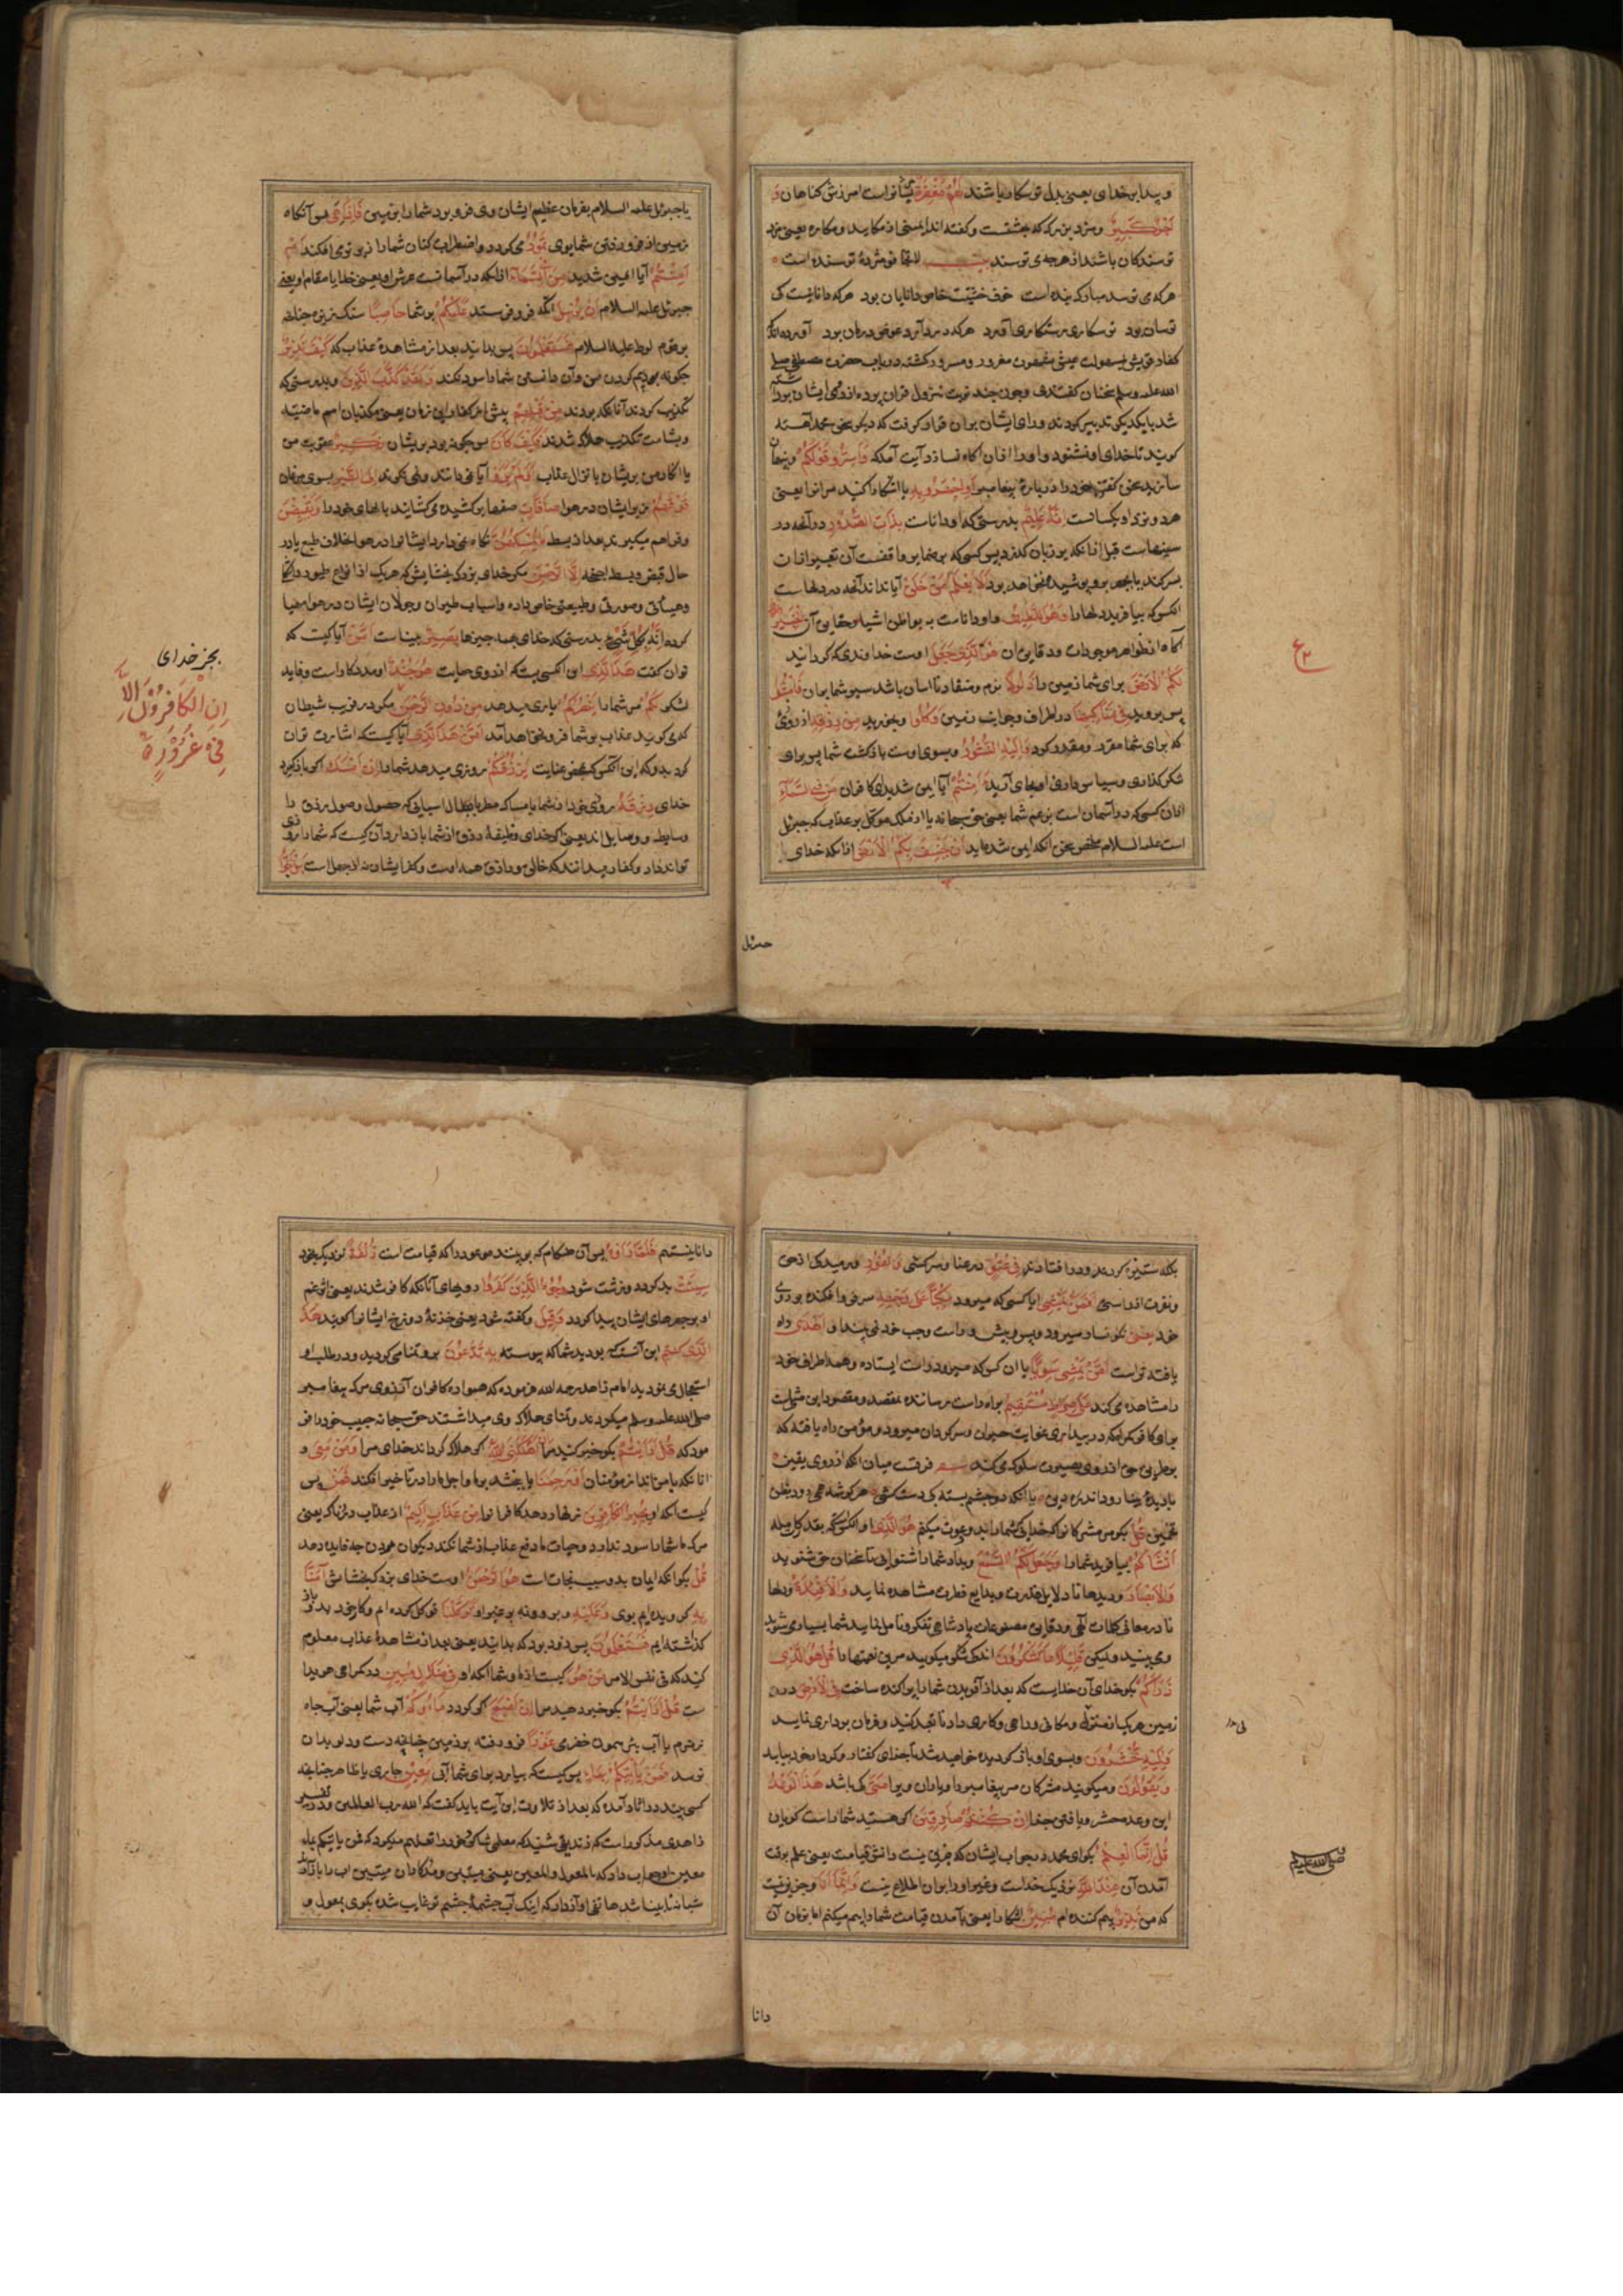 و پیدا بر خدای یعنی بدل ترسکار باشند لَهُم مَّغْفِرَةٌ ایشانراست آمرزش کناهان وَ
أَجْرٌ كَبِيرٌ و مزد بزرک که بهشتست و کفته‌اند ایمنی از مکاید و مکاره یعنی مزد
ترسندکان باشد از هرچه می ترسند بیت لا تخافو مژدهٔ ترسنده است
هر که می ترسد مبارک بنده است خوف خشیت خاص دانایان بود هر که دانا نیست کی
ترسان بود ترسکاری رستکاری آورد هر که درد آرد عوض درمان بود آورده‌اند که
کفار قریش
الله علیه و سلم سخنان کفتندی و چون چند نوبت نزول قران پرده از روی ایشان برداشته
شد با یکدیکر تدبیر کردند و رای ایشان بران قرار کرفت که دیکر سخن محمد آهسته
کویند تا خدای او نشنود و او را ازان آکاه نسازد آیت آمد که وَأَسِرُّوا قَوْلَكُمْ و پنهان
سازید سخن کفتن خود را در بارهٔ پیغامبر أَوِ اجْهَرُوا بِهِ یا آشکارا کنید مر انرا یعنی
هر دو نزد او یکسانست إِنَّهُ عَلِيمٌ بدرستی که او داناست بِذَاتِ الصُّدُورِ در آنچه در
سینهاست قبل از انکه بر زبان کذرد پس کسی که بر ضمایر واقفست آن تغییر ازان
بر کند یا بجهر برو پوشیده نخواهد بود أَلَا يَعْلَمُ مَنْ خَلَقَ آیا نداند آنچه در دلهاست
انکس که بیافرید دلها را وَهُوَ اللَّطِيفُ و او داناست به بواطن اشیا و حقایق آن الْخَبِيرُ
آکاه از ظواهر موجودات و دقایق ان هُوَ الَّذِي جَعَلَ اوست خداوندی که کردانید
لَكُمُ الْأَرْضَ برای شما زمین را ذَلُولًا نرم و منقاد تا اسان باشد سیر شما بران فَامْشُوا
پس بروید فِي مَنَاكِبِهَا در اطراف و جوانب زمین وَكُلُوا و بخورید مِن رِّزْقِهِ از روزی
که برای شما مقرر و مقدر کرد وَإِلَيْهِ النُّشُورُ و بسوی اوست بازکشت شما پس برای
شکرکذاری و سپاس داری او بجای آرید أَأَمِنتُم آیا ایمن شدید ای کافران مَّن فِي السَّمَاءِ
ازان کسی که در آسمان است بزعم شما یعنی حق سبحانه یا از ملک موکل بر عذاب که جبرئیل
است علیه السلام ملخص سخن انکه ایمن شده‌اید أَن يَخْسِفَ بِكُمُ الْأَرْضَ ازانکه خدای
جبرئیل
یا جبرئیل علیه السلام بفرمان عظیم ایشان وی فرو برد شما را بزمین فَإِذَا هِيَ پس آنکاه
زمین از فرو رفتن شما بوی تَمُورُ می کردد و اضطراب کنان شما را زبر تو می افکند أَمْ
أَمِنتُم آیا ایمنی شدید مَّن فِي السَّمَاءِ ازانکه در آسمانست عرش او یعنی خدا یا مقام او یعنی
جبرئیل علیه السلام أَن يُرْسِلَ انکه فرو فرستد عَلَيْكُمْ بر شما حَاصِبًا سنک ریزه چنانچه
بر قوم لوط علیه السلام فَسَتَعْلَمُونَ پس بدانید بعد از مشاهدهٔ عذاب که كَيْفَ نَذِيرِ
چکونه بود بیم کردن من و آن دانستن شما را سود نکند وَلَقَدْ كَذَّبَ الَّذِينَ و بدرستی که
تکذیب کردند آنانکه بودند مِن قَبْلِهِمْ پیش از کفار این زمان یعنی مکذبان امم ماضیه
و بشامت تکذیب هلاک شدند فَكَيْفَ كَانَ پس چکونه بود بریشان نَكِيرِ عقوبت من
یا انکار من بریشان بانزال عذاب أَوَلَمْ يَرَوْا آیا نمی دانند و نمی نکرند إِلَى الطَّيْرِ بسوی مرغان
فَوْقَهُمْ زبر ایشان در هوا صَافَّاتٍ صفها بر کشیده می کشایند بالهای خود را وَيَقْبِضْنَ
و فراهم میکیرند بعد از بسط مَا يُمْسِكُهُنَّ نکاه نمی دارد ایشانرا در هوا خلاف طبع یا در
حال قبض و بسط اجنحه إِلَّا الرَّحْمَٰنُ مکر خدای بزرک بخشایش که هر یک از انواع طیور را
و هیئاتی و صورتی و طبیعتی خاص داده و اسباب طیران و جولان ایشان در هوا مهیا
کرده إِنَّهُ بِكُلِّ شَيْءٍ بدرستی که خدای بهمه چیزها بَصِيرٌ بیناست أَمَّنْ آیا کیست که
توان کفت هَٰذَا الَّذِي این انکسی است که از روی حمایت هُوَ جُندٌ او مددکار است و فاید
لشکر لَّكُمْ مر شما را يَنصُرُكُم یاری میدهد مِّن دُونِ الرَّحْمَٰنِ مکر در فریب شیطان
که می کوید عذاب بر شما فرو نخواهد آمد أَمَّنْ هَٰذَا الَّذِي آیا کیست که اشارت توان
کرد بدو که این انکس که بمحض عنایت يَرْزُقُكُمْ روزی میدهد شما را إِنْ أَمْسَكَ اکر باز کیرد
خدای رِزْقَهُ روزی خود از شما بامساک مطر یا ابطال اسبابی که حصول و وصول رزق را
وسایط و وسایل اند یعنی اکر خدای وظیفهٔ رزق از شما باز دارد آن کیست که شما را روزی
تواند داد و کفار میدانند که خالق و رازق همه اوست و کفر ایشان نه از جهل است بَل لَّجُّوا
بجز خدای
إِنِ الْكَافِرُونَ إِلَّا
فِي غُرُورٍ
بلکه ستیزه کردند و در افتادند فِي عُتُوٍّ در عناد و سرکشی وَنُفُورٍ و رمیدکی از حق
و نفرت از راستی أَفَمَن يَمْشِي آیا کسی که میرود مُكِبًّا عَلَىٰ وَجْهِهِ سرفرو افکنده بر روی
خود یعنی نکونسار میرود و پس و پیش و راست و چپ خود نمی بیند أَهْدَىٰ راه
یافته تر است أَمَّن يَمْشِي سَوِيًّا یا ان کسی که میرود راست ایستاده و همه اطراف خود
را مشاهده می کند عَلَىٰ صِرَاطٍ مُّسْتَقِيمٍ براه راست رساننده بمقصد و مقصود این مثلیست
برای کافر کمراه که در بیداری غوایت حیران و سرکردان میرود و مؤمن راه یافته که
بر طریق حق از روی بصیرت سلوک می کند فرقست میان انکه از روی یقین
با دیدهٔ بینا رود اندر ره دین با انکه دو چشم بسته بی دست کشی هر کوشه همی رود بظن
تخمین قُلْ بکو مر مشرکانرا که خدایی که شما را بدو دعوت میکنم هُوَ الَّذِي او انکس که بقدرت کامله
أَنشَأَكُمْ بیافرید شما را وَجَعَلَ لَكُمُ السَّمْعَ و بداد شما را شنوایی تا سخنان حق شنوید
وَالْأَبْصَارَ و دیدها تا دلایل قدرت و بدایع فطرت مشاهده نمایید وَالْأَفْئِدَةَ و دلها
تا در معانی کلمات الهی و دقایق مصنوعات پادشاهی تفکر و تامل نمایید شما بسیار می شنوید
و می بینید ولیکن قَلِيلًا مَّا تَشْكُرُونَ اندکی شکر میکویید مر این نعمتها را قُلْ هُوَ الَّذِي
ذَرَأَكُمْ بکو خدای آن خداییست که بعد از آفریدن شما را پراکنده ساخت فِي الْأَرْضِ در
زمین هر یک را منزلی و مکانی و راهی و کاری داد تا تعبد کنید و فرمان برداری نمایید
وَإِلَيْهِ تُحْشَرُونَ و بسوی او باز کردیده خواهید شد تا جزای کفتار و کردار خود بیابید
وَيَقُولُونَ و میکویند مشرکان مر پیغامبر را و یاران ویرا مَتَىٰ کی باشد هَٰذَا الْوَعْدُ
این وعدهٔ حشر و یافتن جزا إِن كُنتُمْ صَادِقِينَ اکر هستید شما راست کویان
قُلْ إِنَّمَا الْعِلْمُ بکو ای محمد در جواب ایشان که جز این نیست دانش قیامت یعنی علم بوقت
آمدن آن عِندَ اللَّهِ نزدیک خداست و غیر او را بران اطلاع نیست وَإِنَّمَا أَنَا و جز این نیست
که من نَذِيرٌ بیم کننده‌ام مُّبِينٌ اشکارا یعنی بآمدن قیامت شما را بیم میکنم اما بزمان آن
دانا
دانا نیستم فَلَمَّا رَأَوْهُ پس آن هنکام که ببینند موعود را که قیامت است زُلْفَةً نزدیک بخود
سِيئَتْ بد کردد و زشت شود وُجُوهُ الَّذِينَ كَفَرُوا رویهای آنانکه کافر شدند یعنی اثر غم
او بر چهره‌های ایشان پیدا کردد وَقِيلَ و کفته شود یعنی خزنهٔ دوزخ ایشانرا کویند هَٰذَا
الَّذِي كُنتُم این آنست که بودید شما که پیوسته بِهِ تَدَّعُونَ برو تمنا می کردید و در طلب او
استعجال می نمودید امام زاهد رحمه الله فرموده که همواره کافران آرزوی مرک پیغامبر
صلی الله علیه و سلم میکردند و تمنای هلاک وی میداشتند حق سبحانه حبیب خود را فر
مود که قُلْ أَرَأَيْتُمْ بکو خبر کنید مرا إِنْ أَهْلَكَنِيَ اللَّهُ اکر هلاک کرداند خدای مرا وَمَن مَّعِيَ و
انانکه با من اند از مؤمنان أَوْ رَحِمَنَا یا ببخشد بر ما و اجل ما را در تاخیر افکند فَمَن پس
کیست انکه او يُجِيرُ الْكَافِرِينَ زنهار دهد کافرانرا مِنْ عَذَابٍ أَلِيمٍ از عذاب دردناک یعنی
مرک ما شما را سود ندارد و حیات ما دفع عذاب از شما نکند دیکران مردن چه فایده دهد
قُلْ بکو انکه ایمان بدو سبب نجات است هُوَ الرَّحْمَٰنُ اوست خدای بزرک بخشایش آمَنَّا
بِهِ کرویده‌ایم بوی وَعَلَيْهِ و برو و نه بر غیر او تَوَكَّلْنَا توکل کرده‌ایم و کار خود بدو باز
کذاشته‌ایم فَسَتَعْلَمُونَ پس زود بود که بدانید یعنی بعد از مشاهدهٔ عذاب معلوم
کنید که فی نفس الامر مَنْ هُوَ کیست از ما و شما انکه او فِي ضَلَالٍ مُّبِينٍ در کمراهی هویدا
ست قُلْ أَرَأَيْتُمْ بکو خبر دهید مرا إِنْ أَصْبَحَ اکر کردد مَاؤُكُمْ آب شما یعنی آب چاه
زمزم یا آب بئر میمون حضرمی غَوْرًا فرو رفته بزمین چنانچه دست و دلو بدان
نرسد فَمَن يَأْتِيكُم بِمَاءٍ پس کیست که بیارد برای شما آبی مَّعِينٍ جاری یا ظاهر چنانچه
کسی بیند در اثار آمده که بعد از تلاوت این آیت باید کفت که الله رب العالمین و در تفسیر
زاهدی مذکور است که زندیقی شنید که معلمی شاکرد خود را تعلیم میکرد که فمن یاتیکم بماء
معین او جواب داد که بالمعول والمعین
شبانه نابینا شد هاتفی آواز داد که اینک آب چشمهٔ چشم تو غایب شده بکوی بمعول و
صلی الله علیه وسلم